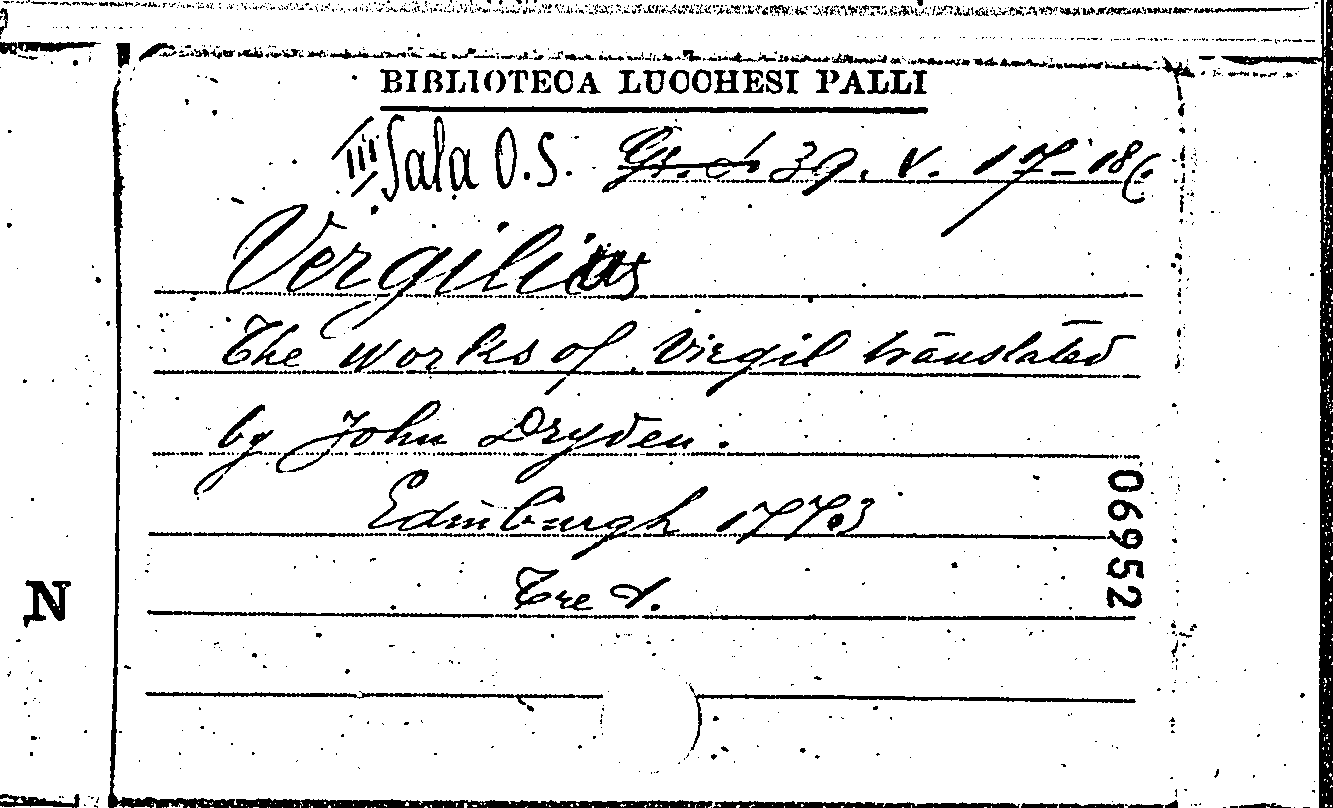 BIBLIOTECA LUCCHESI PALLI
III Sala O.S. 39. V. 17-18
Vergilius
The works of Virgil translated
by John Dryden.
Edinburgh 1773
Tre v.
06952
N